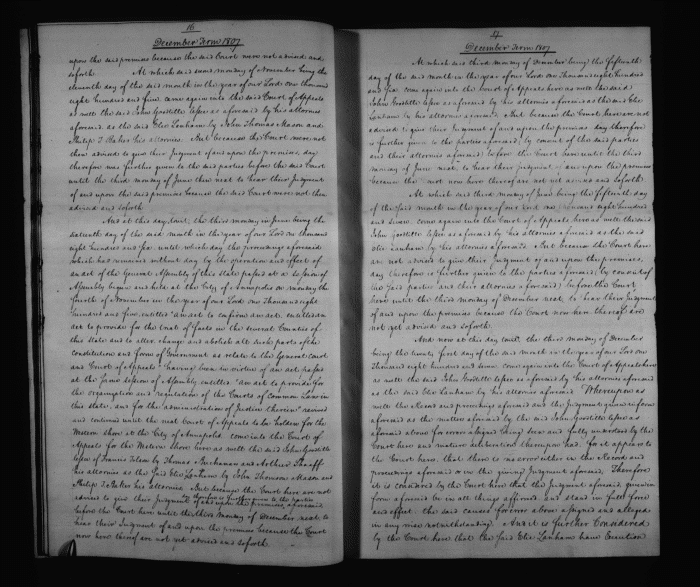 16
December Term 1807
upon the said premises because the said Court were not advised and
soforth. At which said second monday of November being the
eleventh day of the said month in the year of our Lord one thousand
eight hundred and five came again into the said Court of Appeals
as well the said John Goodtitle lessee as aforesaid by his attornies
aforesaid as the said Elie Lanham by John Thomas Mason and
Philip I Baker his attornies. But because the Court were not
then advised to give their Judgment of and upon the premises, day
therefore was further given to the said parties before the said Court
until the third monday of June then next to hear their Judgment
of and upon the said premises because the said Court were not then
advised and soforth
And at this day, towit, the third monday in June being the
sixteenth day of the said month in the year of our Lord one thousand
eight hundred and six until which day the proceedings aforesaid
which has remained without day by the operation and effect of
an act of the General Assembly of this state passed at a session of
Assembly begun and held at the City of Annapolis on monday the
fourth of November in the year of our Lord one thousand eight
hundred and five, entitled "an act to confirm an act, entitled an
act to provide for the trial of facts in the several Counties of
this state and to alter change and abolish all such parts of the
constitution and form of Government as relate to the General court
and Court of Appeals" having been in virtue of an act passed
at the same session of Assembly entitled "an act to provide for
the organization and regulation of the Courts of common Law in
this state, and for the administration of Justice therein" revived
and continued until the next Court of Appeals to be holden for the
Western Shore at the City of Annapolis come into the Court of
Appeals for the Western Shore here as well the said John Goodtitle
lessee of Francis Tolson by Thomas Buchanan and Arthur Shaaff
his attornies as the said Elie Lanham by John Thomson Mason and
Philip I Baker his attornies. But because the Court here are not
advised to give their Judgment of and upon the premises aforesaid
day therefore is further given to the parties
before the Court here until the third monday of December next to
hear their Judgment of and upon the premises because the Court
now here thereof are not yet advised and soforth.
17
December Term 1807
At which said third monday of December being the fifteenth
day of the said month in the year of our Lord one thousand eight hundred
and six come again into the Court of Appeals here as well the said
John Goodtitle lessee as aforesaid by his attornies aforesaid as the said Elie
Lanham by his attornies aforesaid. But because the Court here are not
advised to give their Judgment of and upon the premises day therefore
is further given to the parties aforesaid; by consent of the said parties
and their attornies aforesaid; before the Court here until the third
monday of June next, to hear their Judgment of and upon the premises
because the now here thereof are not yet advised and soforth
At which said third monday of June being the fifteenth day
of the said month in the year of our Lord one thousand eight hundred
and seven come again into the Court of Appeals here as well the said
John Goodtitle lessee as aforesaid by his attornies aforesaid as the said
Elie Lanham by his attornies aforesaid. But because the Court here
are not advised to give their Judgment of and upon the premises,
day therefore is further given to the parties aforesaid; by consent of
the said parties and their attornies aforesaid; before the Court
here until the third monday of December next to hear their Judgment
of and upon the premises because the Court now here thereof are
not yet advised and soforth.
And now at this day towit the third monday of December
being the twenty first day of the said month in the year of our Lord one
Thousand eight hundred and seven come again into the Court of Appeals here
as well the said John Goodtitle lessee as aforesaid by his attornies aforesaid
as the said Elie Lanham by his attornies aforesaid. Whereupon as
well the Record and proceedings aforesaid and the Judgment given in form
aforesaid as the matters aforesaid by the said John Goodtitle lessee as
aforesaid above for error assigned being seen and fully understood by the
Court here and mature deliberation thereupon had. For it appears to
the Court here, that there is no error either in the Record and
proceedings aforesaid or in the giving Judgment aforesaid. Therefore
it is considered by the Court here that the Judgment aforesaid given in
form aforesaid be in all things affirmed and stand in full force
and effect, the said causes for error above assigned and alleged
in any wise notwithstanding. And it is further Considered
by the Court here that the said Elie Lanham have Execution